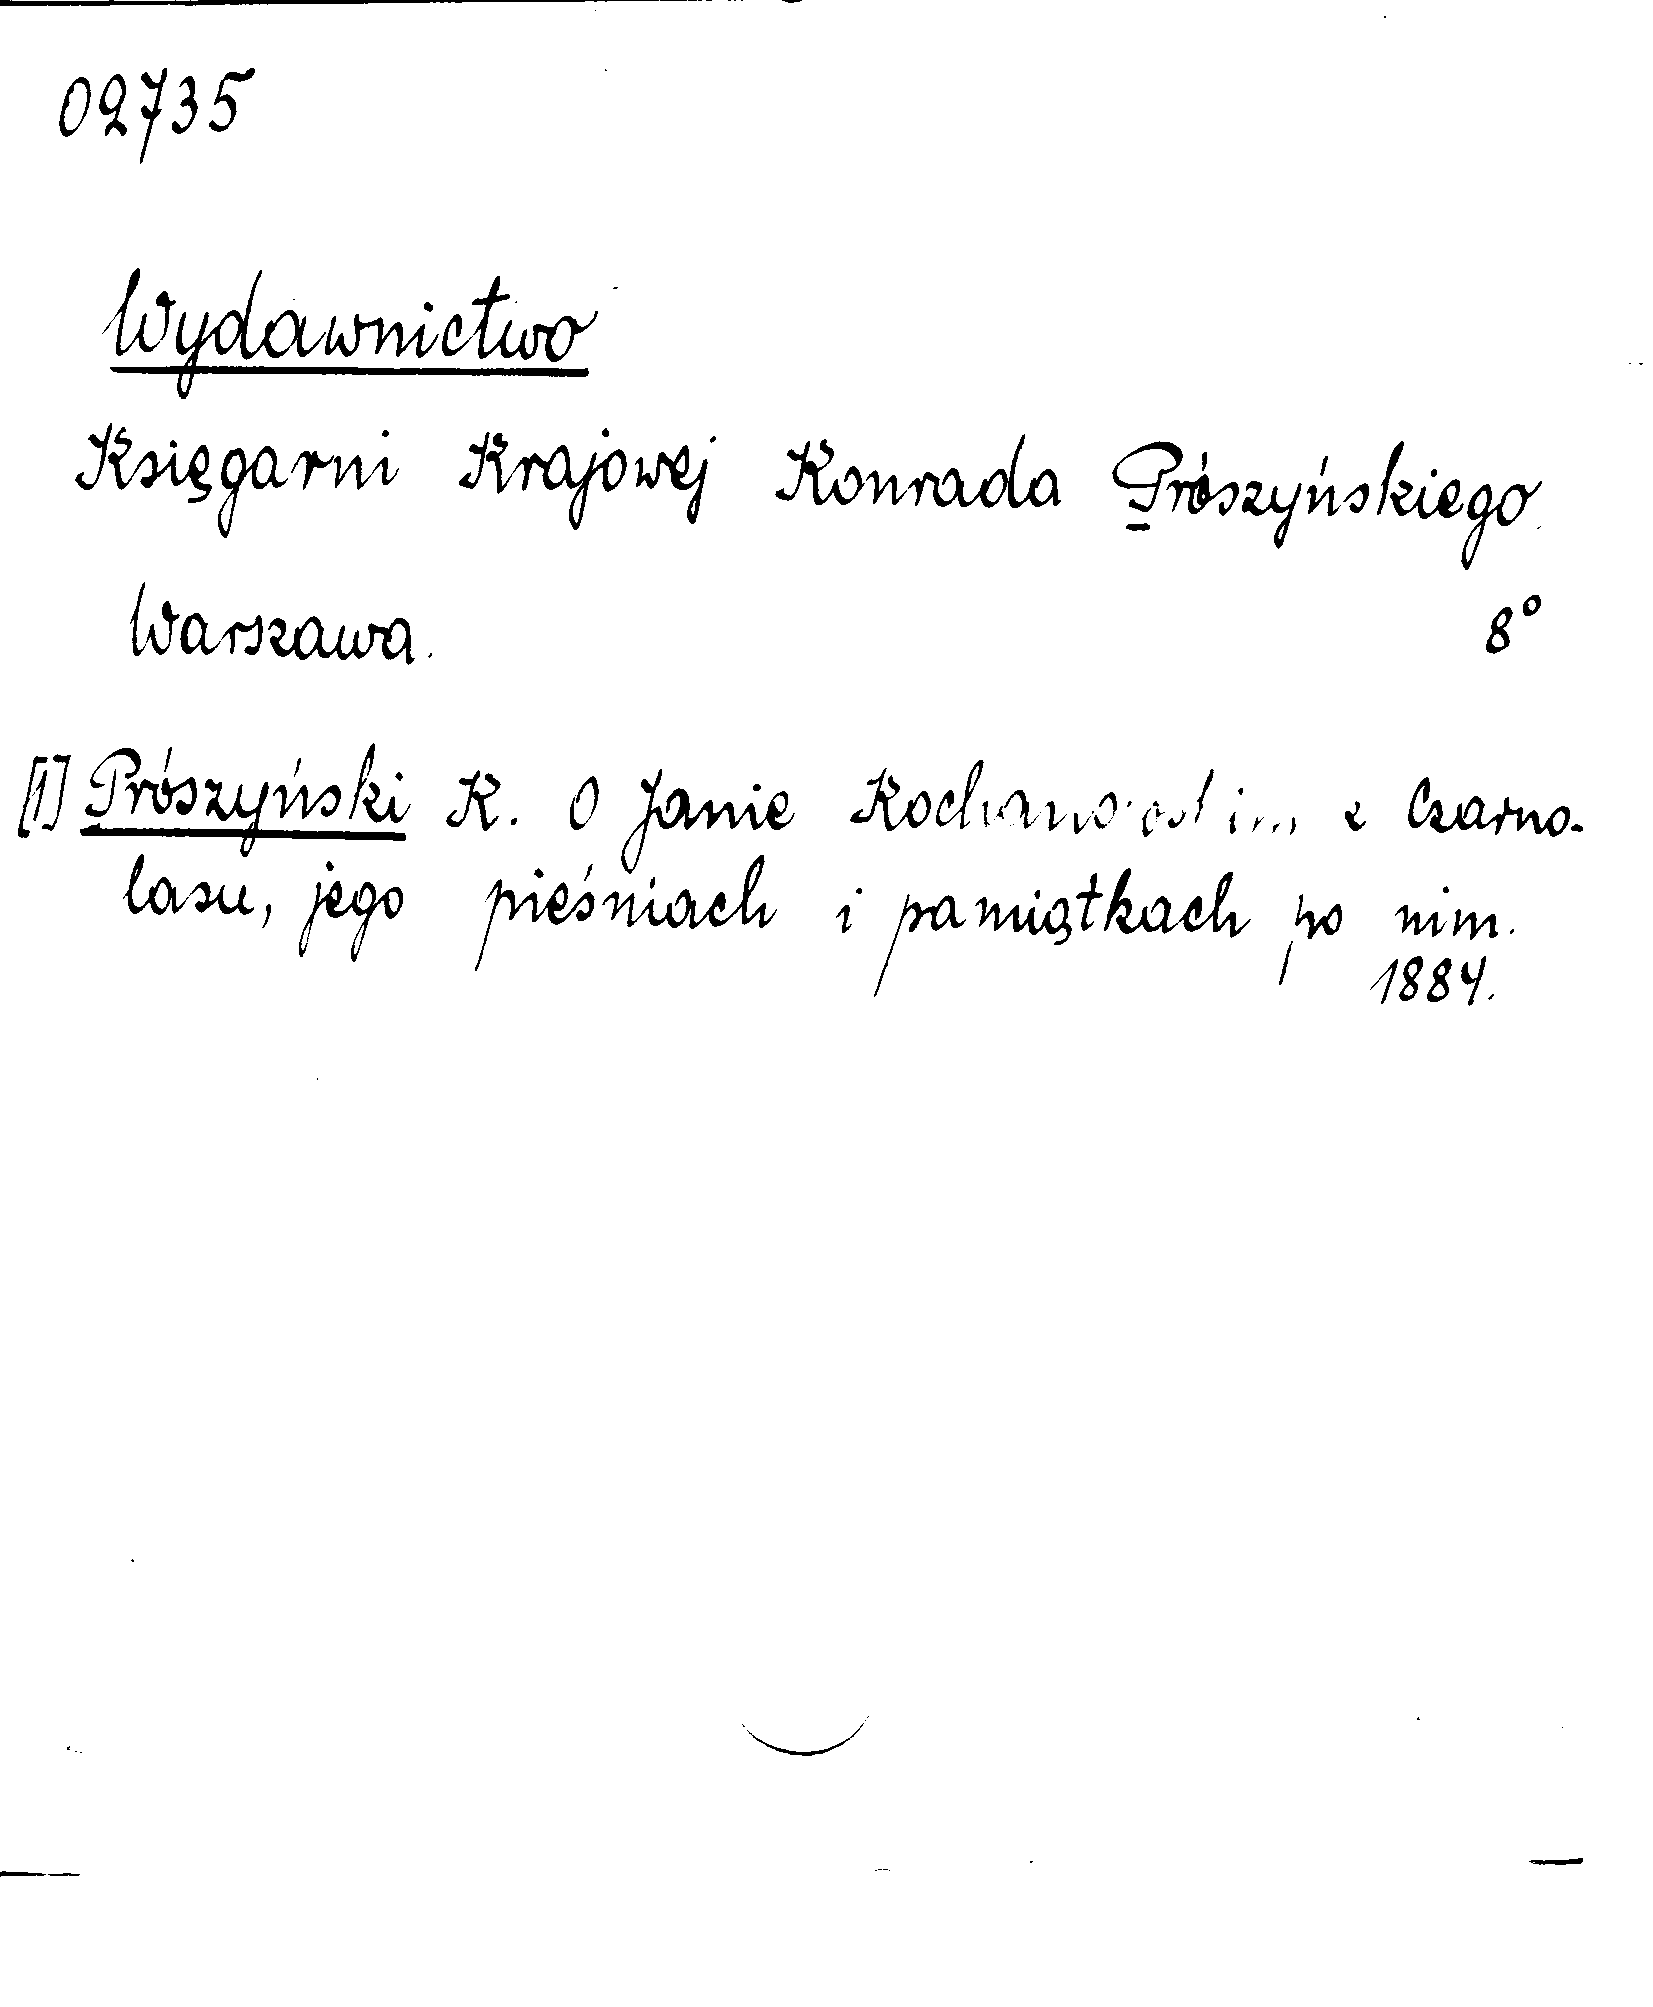 02735
Wydawnictwo
Księgarni Krajowej Konrada Prószyńskiego.
Warszawa. 8°
[1] Prószyński K. O Janie z Czarno-
lasu, jego pieśniach i pamiątkach po nim.
1884.